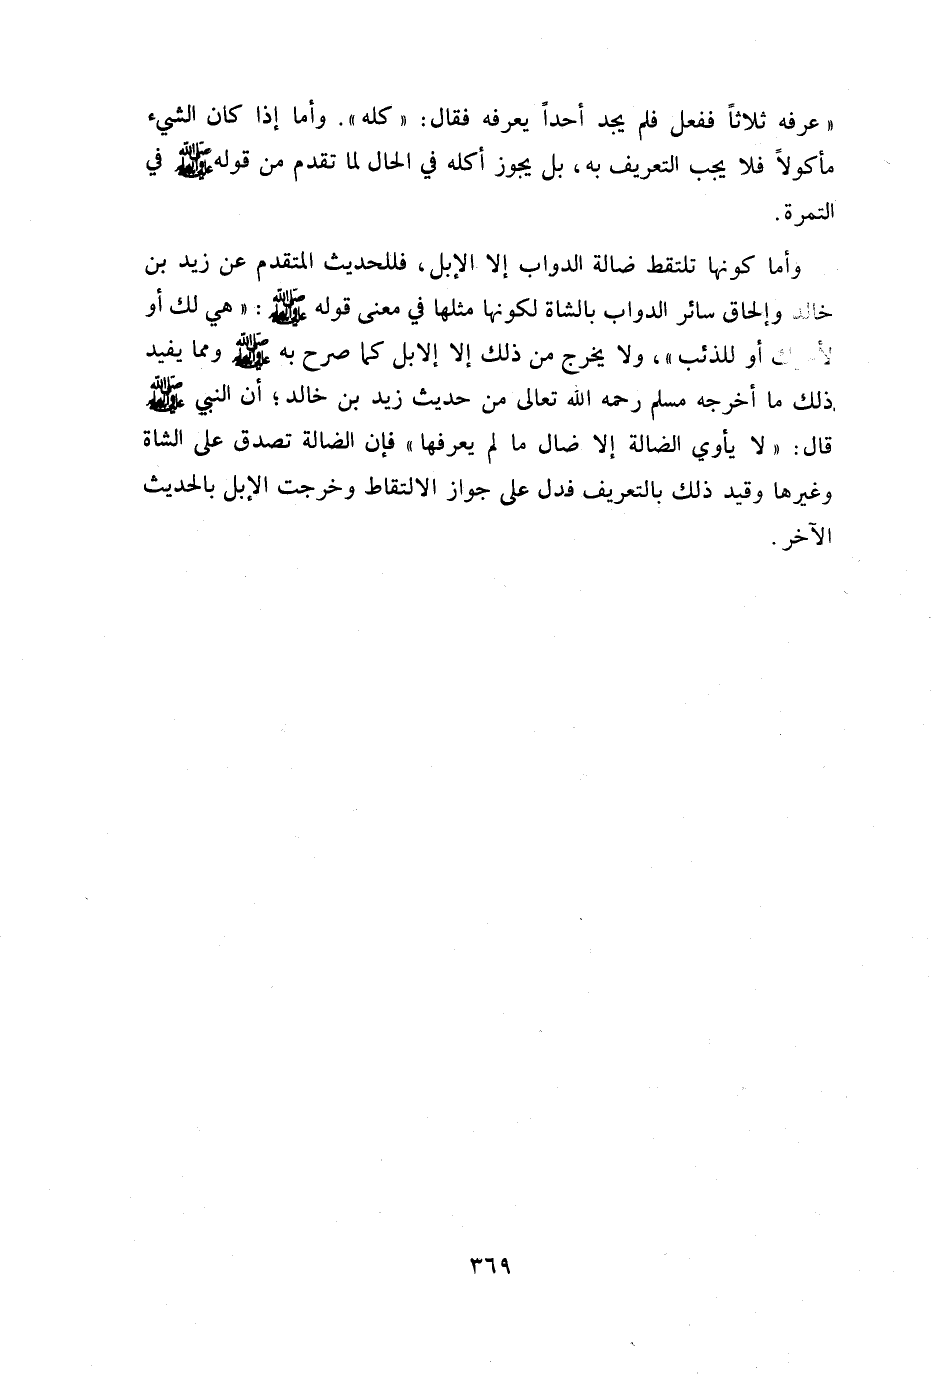 « عرفه ثلاثاً ففعل فلم يجد أحداً يعرفه فقال: « كله ». وأما إذا كان الشيء
مأكولاً فلا يجب التعريف به، بل يجوز أكله في الحال لما تقدم من قوله ﷺ في
التمرة.
وأما كونها تلتقط ضالة الدواب إلا الإبل، فللحديث المتقدم عن زيد بن
خالد وإلحاق سائر الدواب بالشاة لكونها مثلها في معنى قوله ﷺ : « هي لك أو
أو للذئب »، ولا يخرج من ذلك إلا إلابل كما صرح به ﷺ ومما يفيد
ذلك ما أخرجه مسلم رحمه الله تعالى من حديث زيد بن خالد؛ أن النبي ﷺ
قال: « لا يأوي الضالة إلا ضال ما لم يعرفها » فإن الضالة تصدق على الشاة
وغيرها وقيد ذلك بالتعريف فدل على جواز الالتقاط وخرجت الإبل بالحديث
الآخر.
٣٦٩